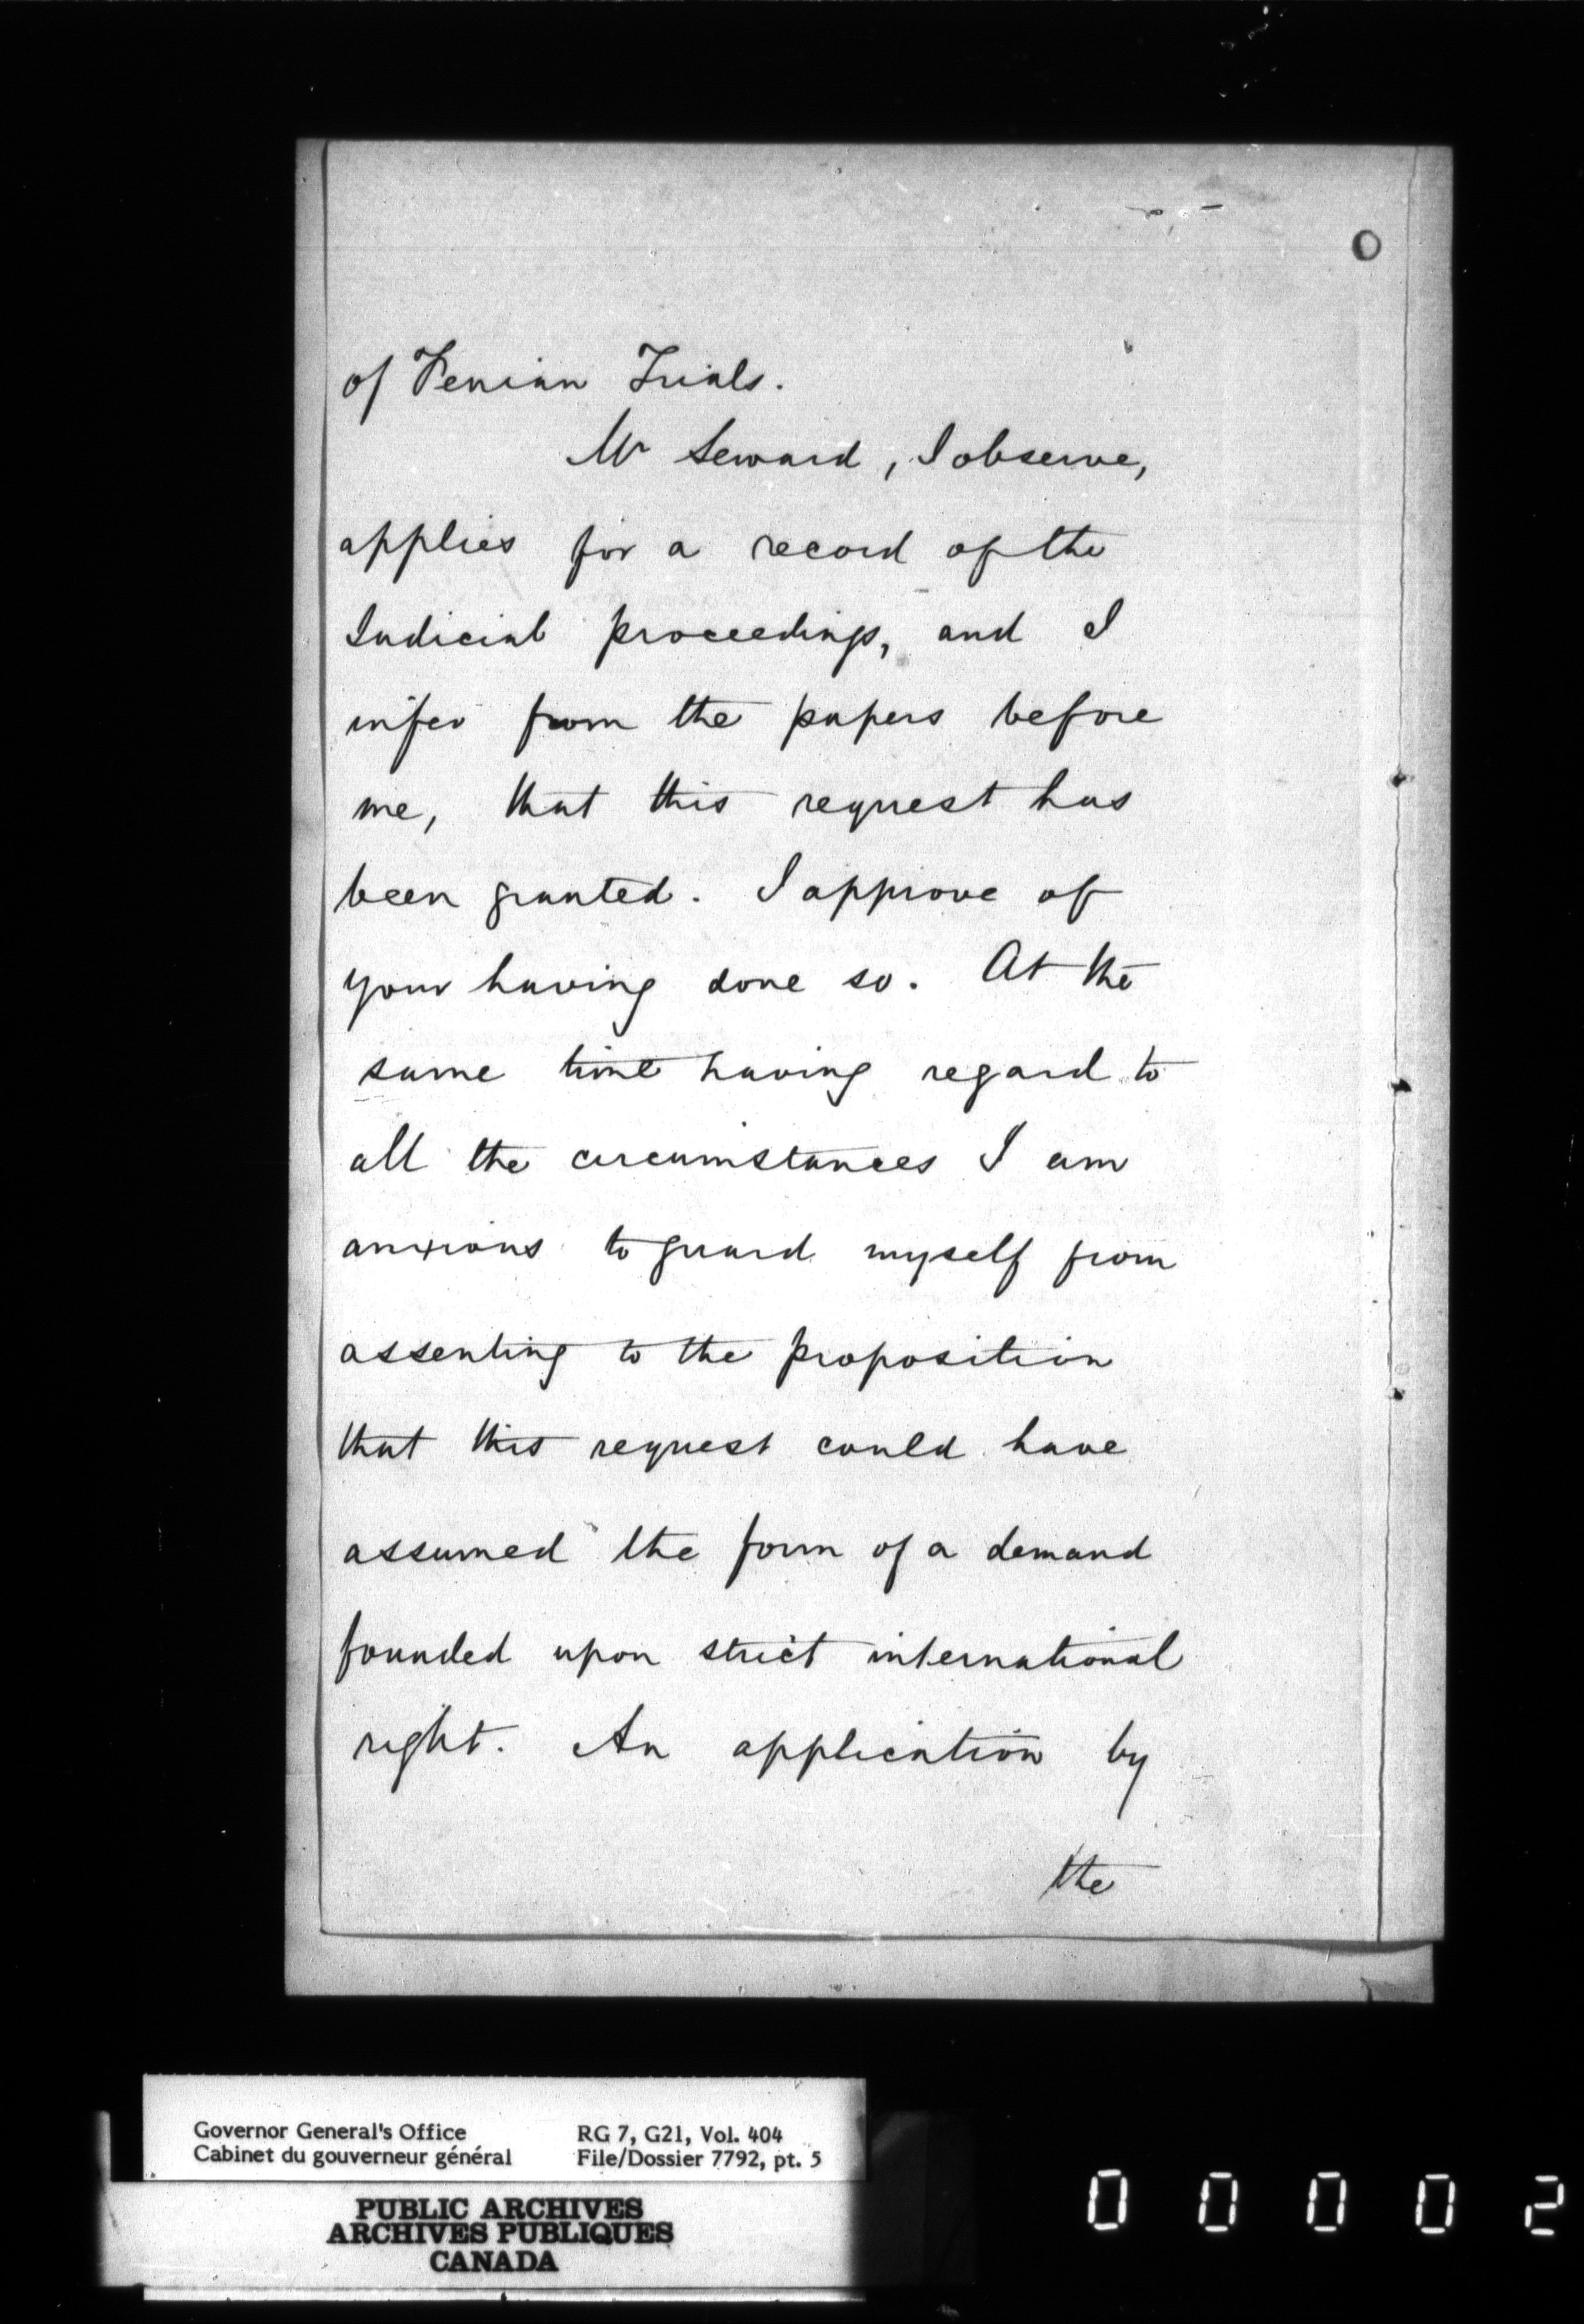 0
of Fenian Trials.
Mr Seward, I observe,
applies for a record of the
Judicial proceedings, and I
infer from the papers before
me, that this request has
been granted. I approve of
your having done so. At the
same time having regard to
all the circumstances I am
anxious to guard myself from
assenting to the proposition
that this request could have
assumed the form of a demand
founded upon strict international
right. An application by
the
Governor General's Office RG 7, G21, Vol. 404
Cabinet du gouverneur général File/Dossier 7792, pt. 5
PUBLIC ARCHIVES
ARCHIVES PUBLIQUES
CANADA
0 0 0 0 2